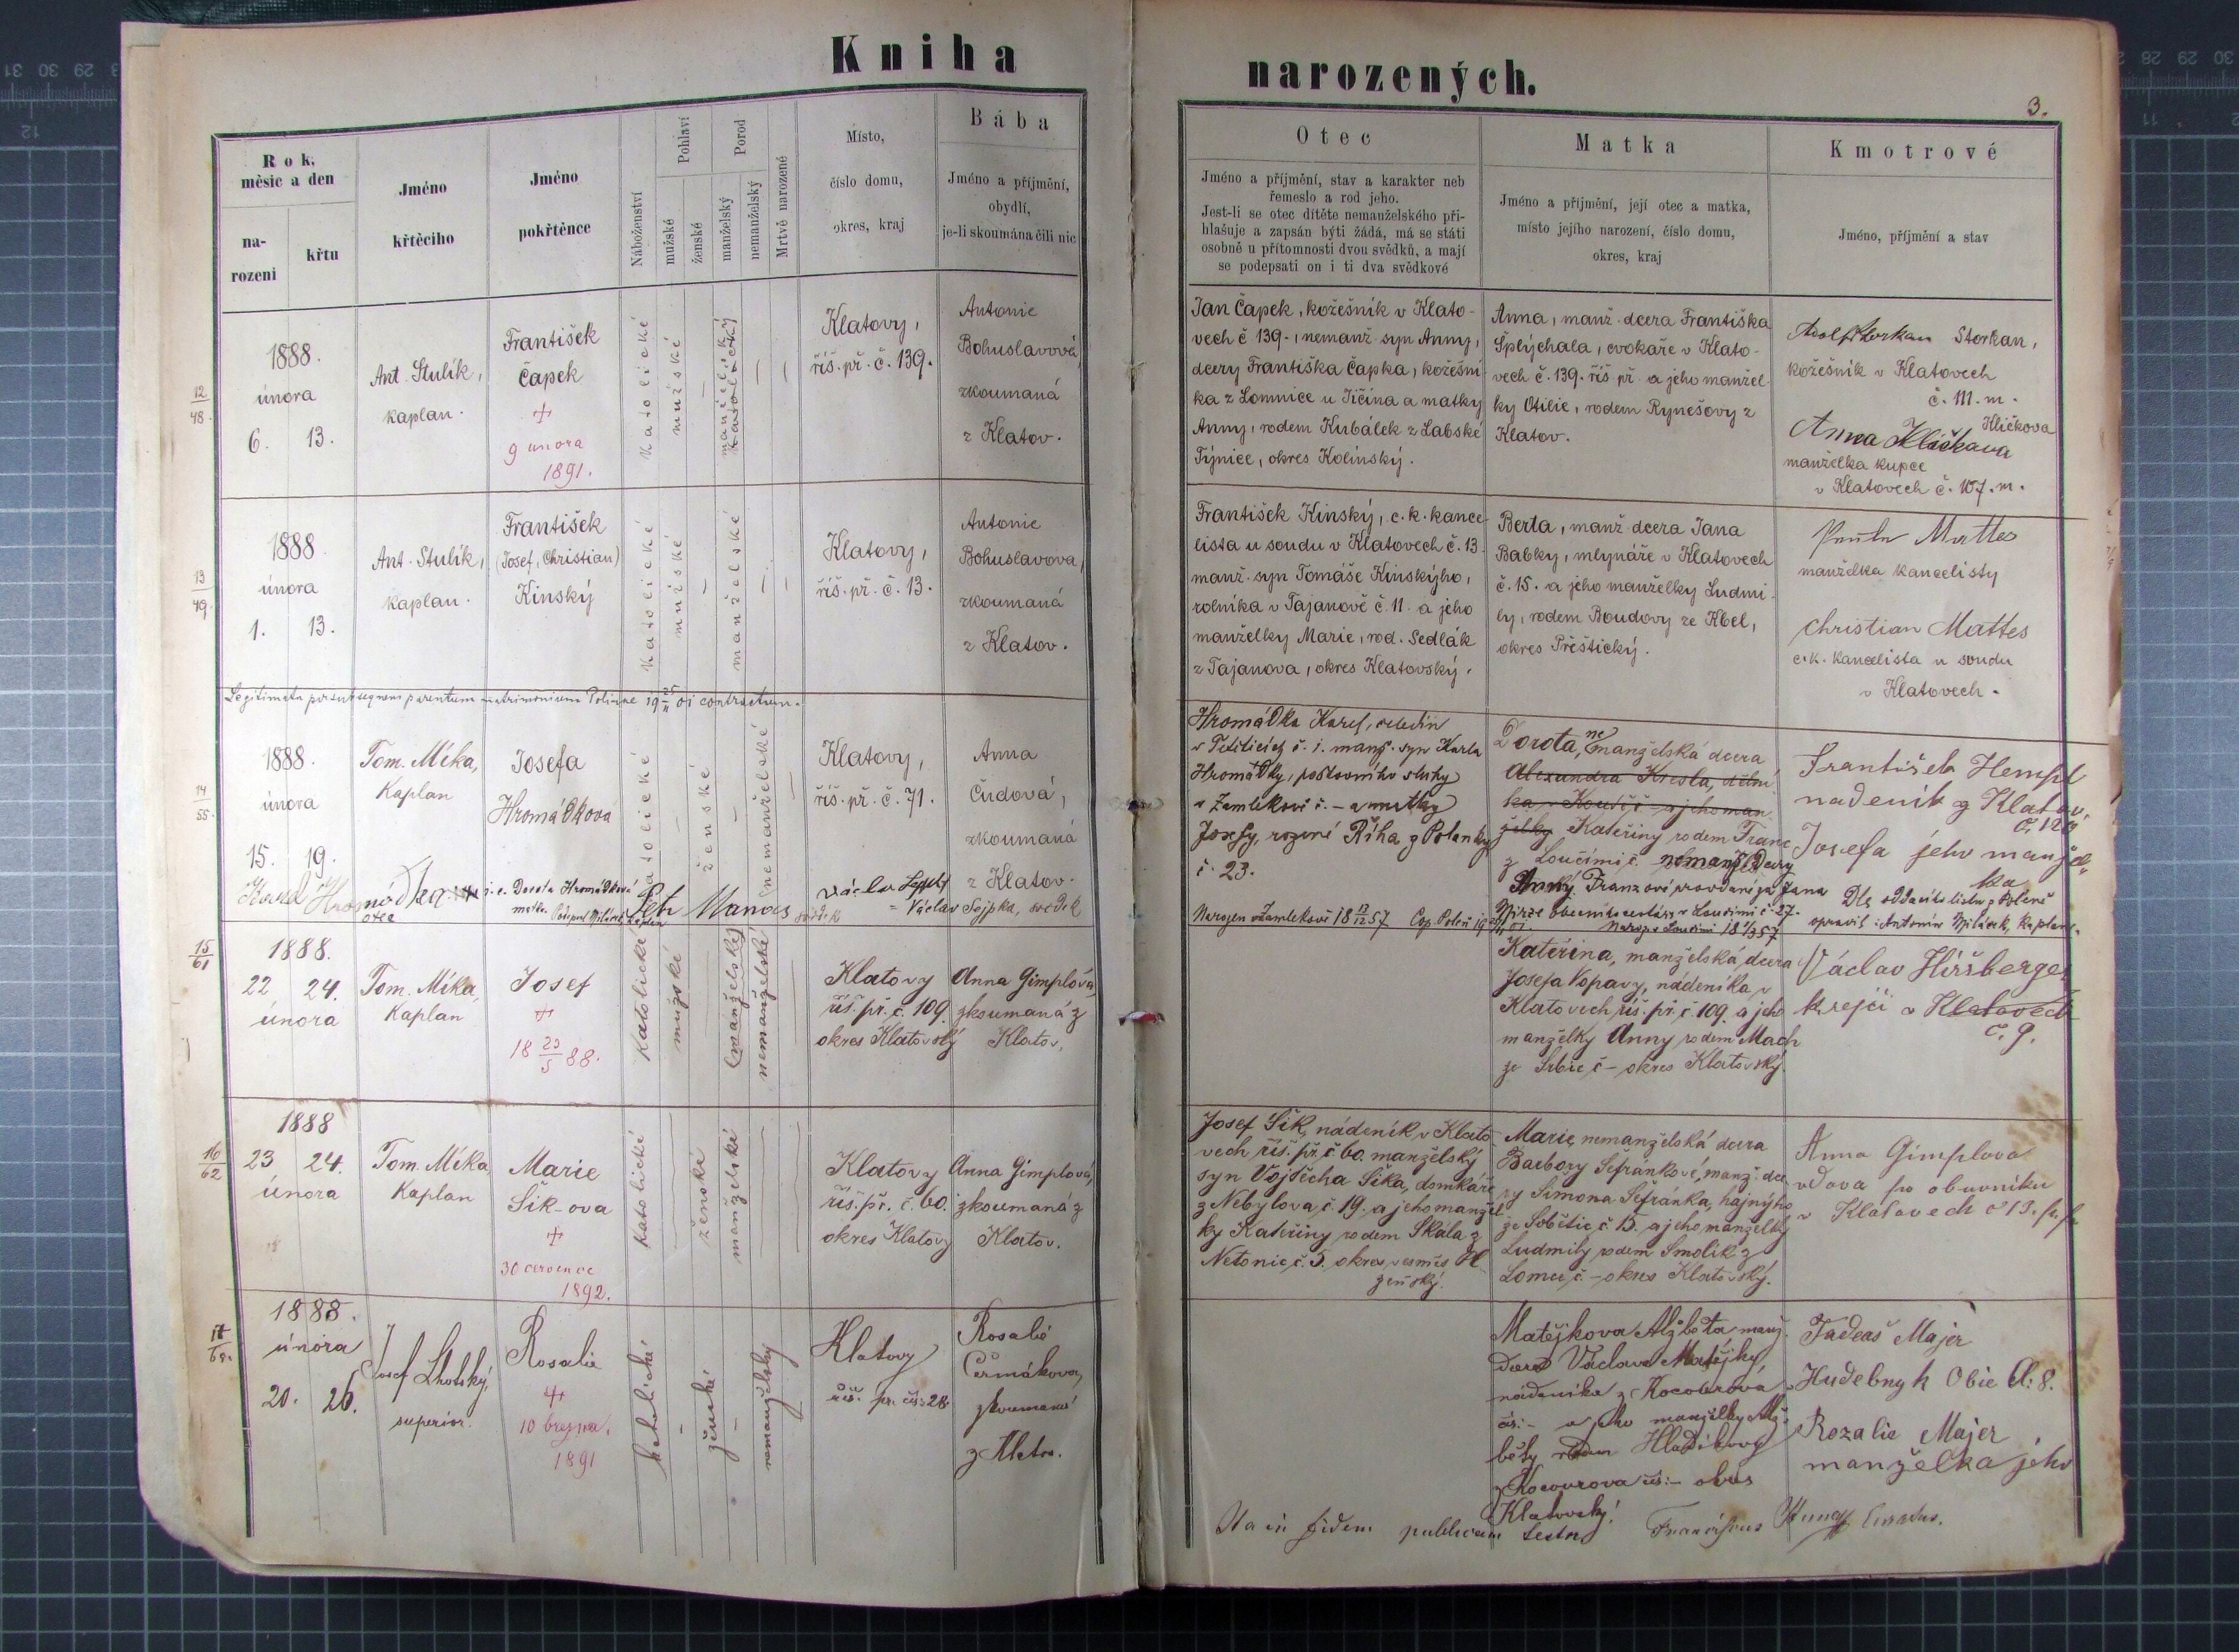 Kniha
narozených.
3.
Rok, měsíc a den
narození
křtu
Jméno křtěcího
Jméno pokřtěnce
Náboženství
Pohlaví
mužské
ženské
Porod
manželský
nemanželský
Mrtvě narozené
Místo,
číslo domu,
okres, kraj
Bába
Jméno a příjmění,
obydlí,
je-li skoumána čili nic
Otec
Jméno a příjmění, stav a karakter neb
řemeslo a rod jeho.
Jest-li se otec dítěte nemanželského při-
hlašuje a zapsán býti žádá, má se státi
osobně u přítomnosti dvou svědků, a mají
se podepsati on i ti dva svědkové
Matka
Jméno a příjmění, její otec a matka,
místo jejího narození, číslo domu,
okres, kraj
Kmotrové
Jméno, příjmění a stav
12/48.
1888.
února
6. 13.
Ant. Stulík,
kaplan.
František
Čapek
+
9 února
1891.
katolické
mužské
Klatovy,
říš. př. č. 139.
Antonie
Bohuslavová,
zkoumaná
z Klatov.
Jan Čapek, kožešník v Klato-
vech č 139., nemanž syn Anny,
dcery Františka Čapka, kožešní-
ka z Lomnice u Jičína a matky
Anny, rodem Kubálek z Labské
Týnice, okres Kolínský.
Anna, manž. dcera Františka
Šplýchala, cvokaře v Klato-
vech č. 139. říš př. a jeho manžel-
ky Otilie, rodem Rynešovy z
Klatov.
Adolf Storkan Storkan,
kožešník v Klatovech
č. 111. m.
Hličkova
Anna Hličkava
manželka kupce
v Klatovech č. 107. m.
13/49.
1888
února
1. 13.
Ant. Stulík,
kaplan.
František
(Josef, Christian)
Kinský
katolické
mužské
manželské
Klatovy,
říš. př. č. 13.
Antonie
Bohuslavova,
zkoumaná
z Klatov.
František Kinský, c. k. kance-
lista u soudu v Klatovech č. 13.
manž. syn Tomáše Kinskýho,
rolníka v Tajanově č. 11. a jeho
manželky Marie, rod. Sedlák
z Tajanova, okres Klatovský.
Berta, manž dcera Jana
Babky, mlynáře v Klatovech
č. 15. a jeho manželky Ludmi-
ly, rodem Boudovy ze Kbel,
okres Přeštický.
Mattes
manželka kancelisty
Christian Mattes
c. k. kancelista u soudu
v Klatovech.
14/55.
1888.
února
15. 19.
Tom. Míka,
Kaplan
Josefa
Hromádková
katolické
ženské
nemanželské
Klatovy,
říš. př. č. 71.
Anna
Čudová,
zkoumaná
z Klatov.
Karel Hromádka
otec
Dorota Hromádková
matka
Petr Manas
svědek
Václav Sojpka, svědek
Hromádka Karel, čeledín
č. 1. manž. syn Karla
Hromádky, poštovního sluhy
a matky
Josefy, rozené Říha z Polanky
č. 23.
Dorota, nemanželská dcera
Kateřiny rodem Franc
z Loučimi č. nemanž. dcery
Anny Franzové provdané za Jana
František Hempl
nadeník z Klatov.
č. 120
Josefa jeho manžel-
ka
Dle oddacího listu z Poleně
opravil: Antonín Mlíček, kaplan.
15/61
1888.
22 24.
února
Tom. Míka,
Kaplan
Josef
+
18 23/5 88.
katolické
mužské
(manželský)
nemanželské
Klatovy
říš. př. č. 109.
okres Klatovský
Anna Gimplová,
zkoumaná z
Klatov.
Kateřina, manželská dcera
Josefa Vopavy, nádeníka v
Klatovech, říš. př. č 109. a jeho
manželky Anny rodem Mach
ze Srbic č – okres Klatovský.
Václav Hiršberger
krejčí v Klatovech
č. 9.
16/62
1888
23 24.
února
Tom. Míka
Kaplan
Marie
Šik-ova
+
30 července
1892.
katolické
ženské
manželské
Klatovy
říš. př. č. 60.
okres Klatovy
Anna Gimplová,
zkoumaná z
Klatov.
Josef Šik, nádeník v Klato-
vech říš. př. č 60. manželský
syn Vojtěcha Šika, domkáře
z Nebylova č. 19. a jeho manžel-
ky Kateřiny rodem Skala z
Netonic č. 5.
Marie, nemanželská dcera
Barbory Šefránkové, manž. dce-
ry Šimona Šefránka, hajnýho
ze Sobětic č 15. a jeho manželky
Ludmily rodem Smolík z
Lomce č. – okres Klatovský.
Anna Gimplova
vdova po obuvníku
v Klatovech č 13.
17
1888.
února
20. 26.
Josef Lhotský,
superior.
Rosalie
+
10 března.
1891
katolické
ženské
nemanželský
Klatovy
říš. př. čís: 28.
Rosalie
Čermákova,
zkoumaná
z Klatov.
Matějkova Alžběta manž.
dcera Václava Matějky,
nádeníka z Kocourova
čís: – a jeho manželky Alž-
běty rodem Hladíkovy
z Kocourova čís: – okres
Klatovský.
Tadeaš Majer
Hudebnyk Obic č: 8.
Rozalie Majer
manželka jeho
Ita in fidem publicam testor Franciscus